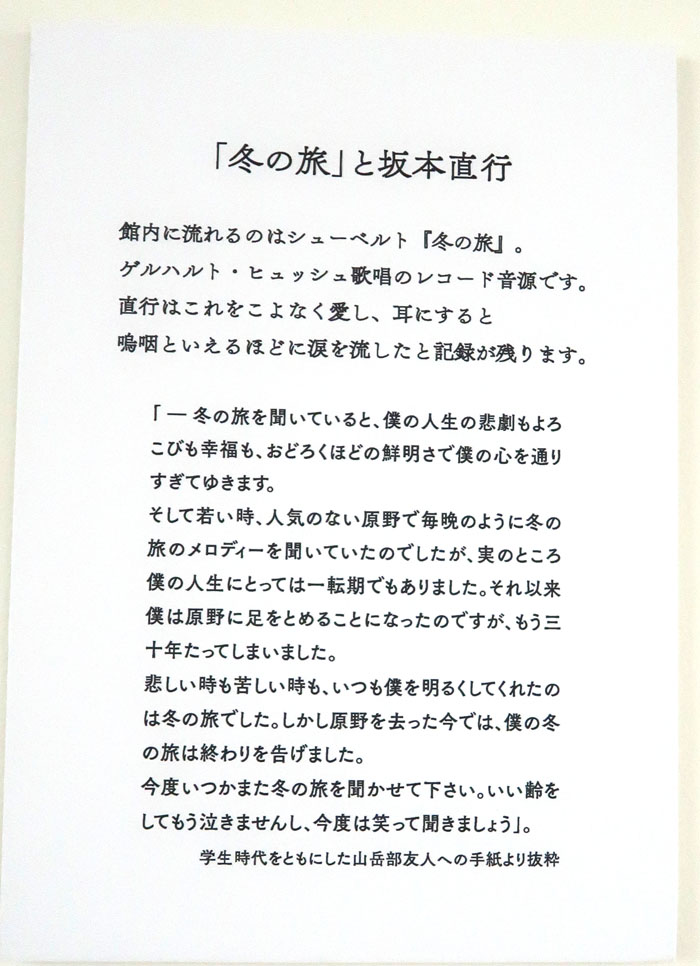 「冬の旅」と坂本直行
館内に流れるのはシューベルト『冬の旅』。
ゲルハルト・ヒュッシュ歌唱のレコード音源です。
直行はこれをこよなく愛し、耳にすると
嗚咽といえるほどに涙を流したと記録が残ります。
「 ― 冬の旅を聞いていると、僕の人生の悲劇もよろ
こびも幸福も、おどろくほどの鮮明さで僕の心を通り
すぎてゆきます。
そして若い時、人気のない原野で毎晩のように冬の
旅のメロディーを聞いていたのでしたが、実のところ
僕の人生にとっては一転期でもありました。それ以来
僕は原野に足をとめることになったのですが、もう三
十年たってしまいました。
悲しい時も苦しい時も、いつも僕を明るくしてくれたの
は冬の旅でした。しかし原野を去った今では、僕の冬
の旅は終わりを告げました。
今度いつかまた冬の旅を聞かせて下さい。いい齢を
してもう泣きませんし、今度は笑って聞きましょう」。
学生時代をともにした山岳部友人への手紙より抜粋